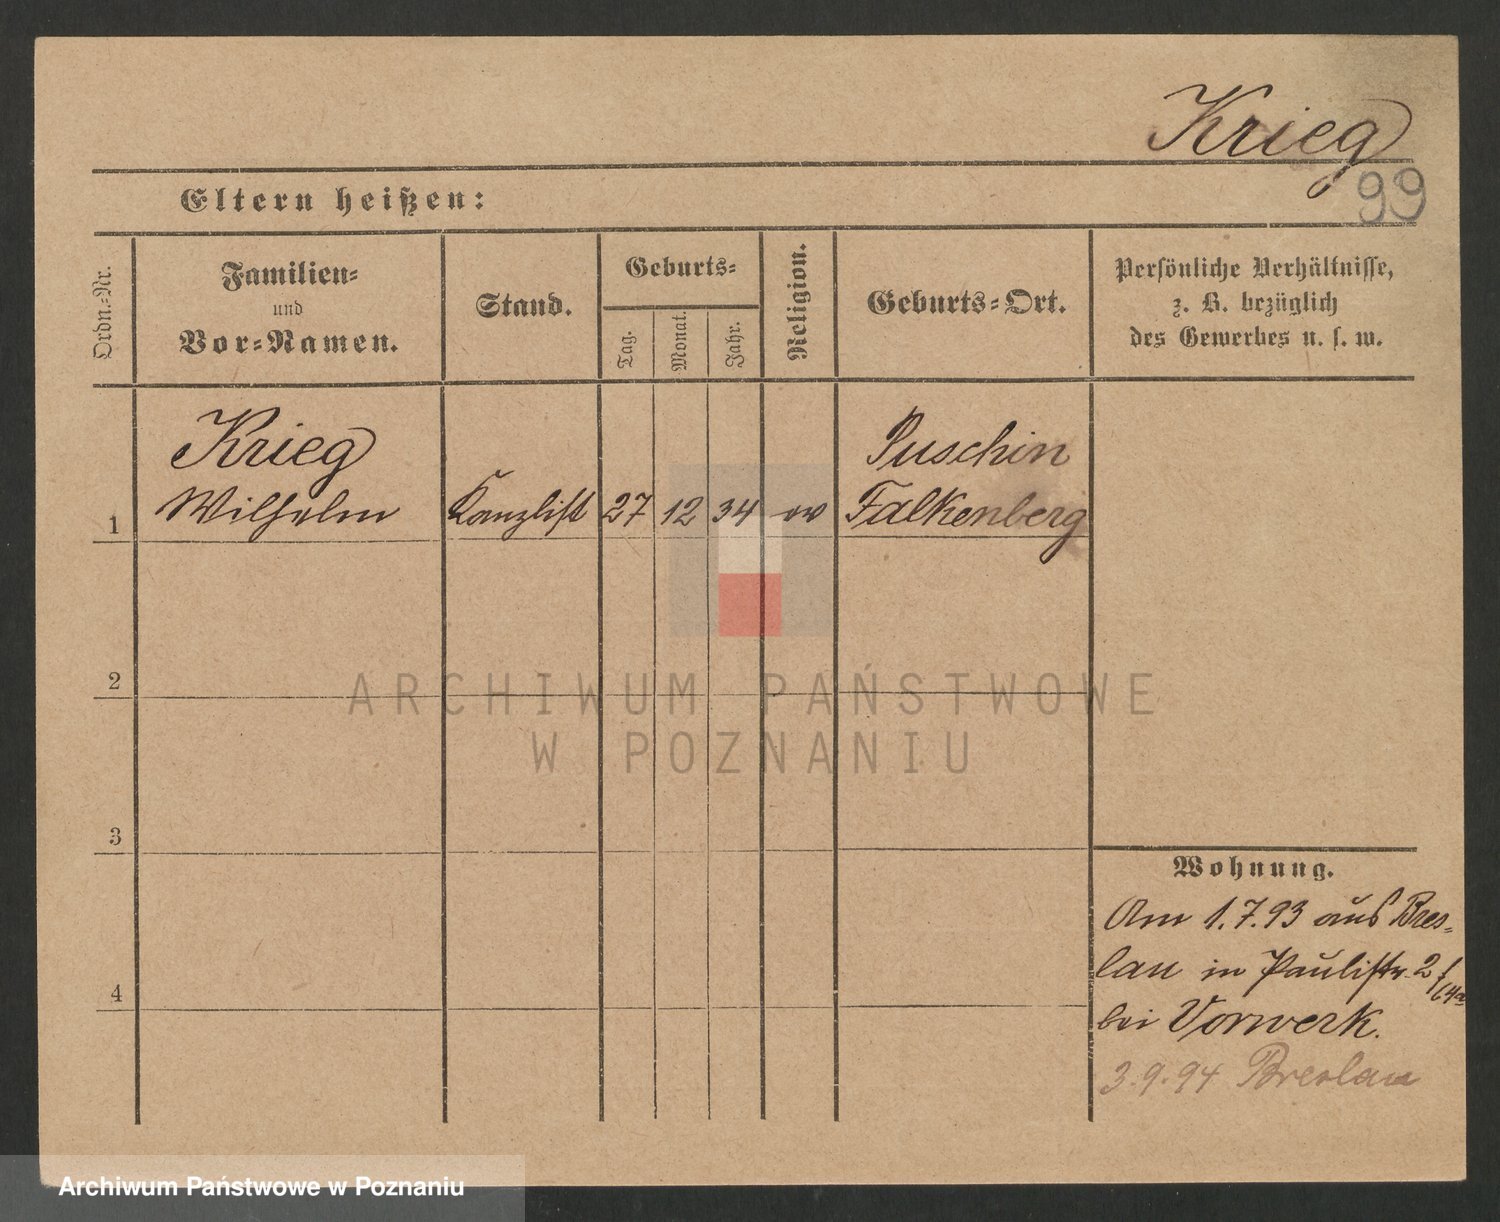 Krieg
99
Eltern heißen:
Ordn.-Nr.
Familien-
und
Vor-Namen.
Stand.
Geburts-
Tag.
Monat.
Jahr.
Religion.
Geburts-Ort.
Persönliche Verhältnisse,
z. B. bezüglich
des Gewerbes u. s. w.
Krieg
Puschin
1 Wilhelm Kanzlist 27 12 34 ev Falkenberg
2
ARCHIWUM PAŃSTWOWE
W POZNANIU
3
Wohnung.
Am 1.7.93 aus Bres-
lau in Paulistr. 2
4
bei Vorwerk.
3.9.94 Breslau
Archiwum Państwowe w Poznaniu